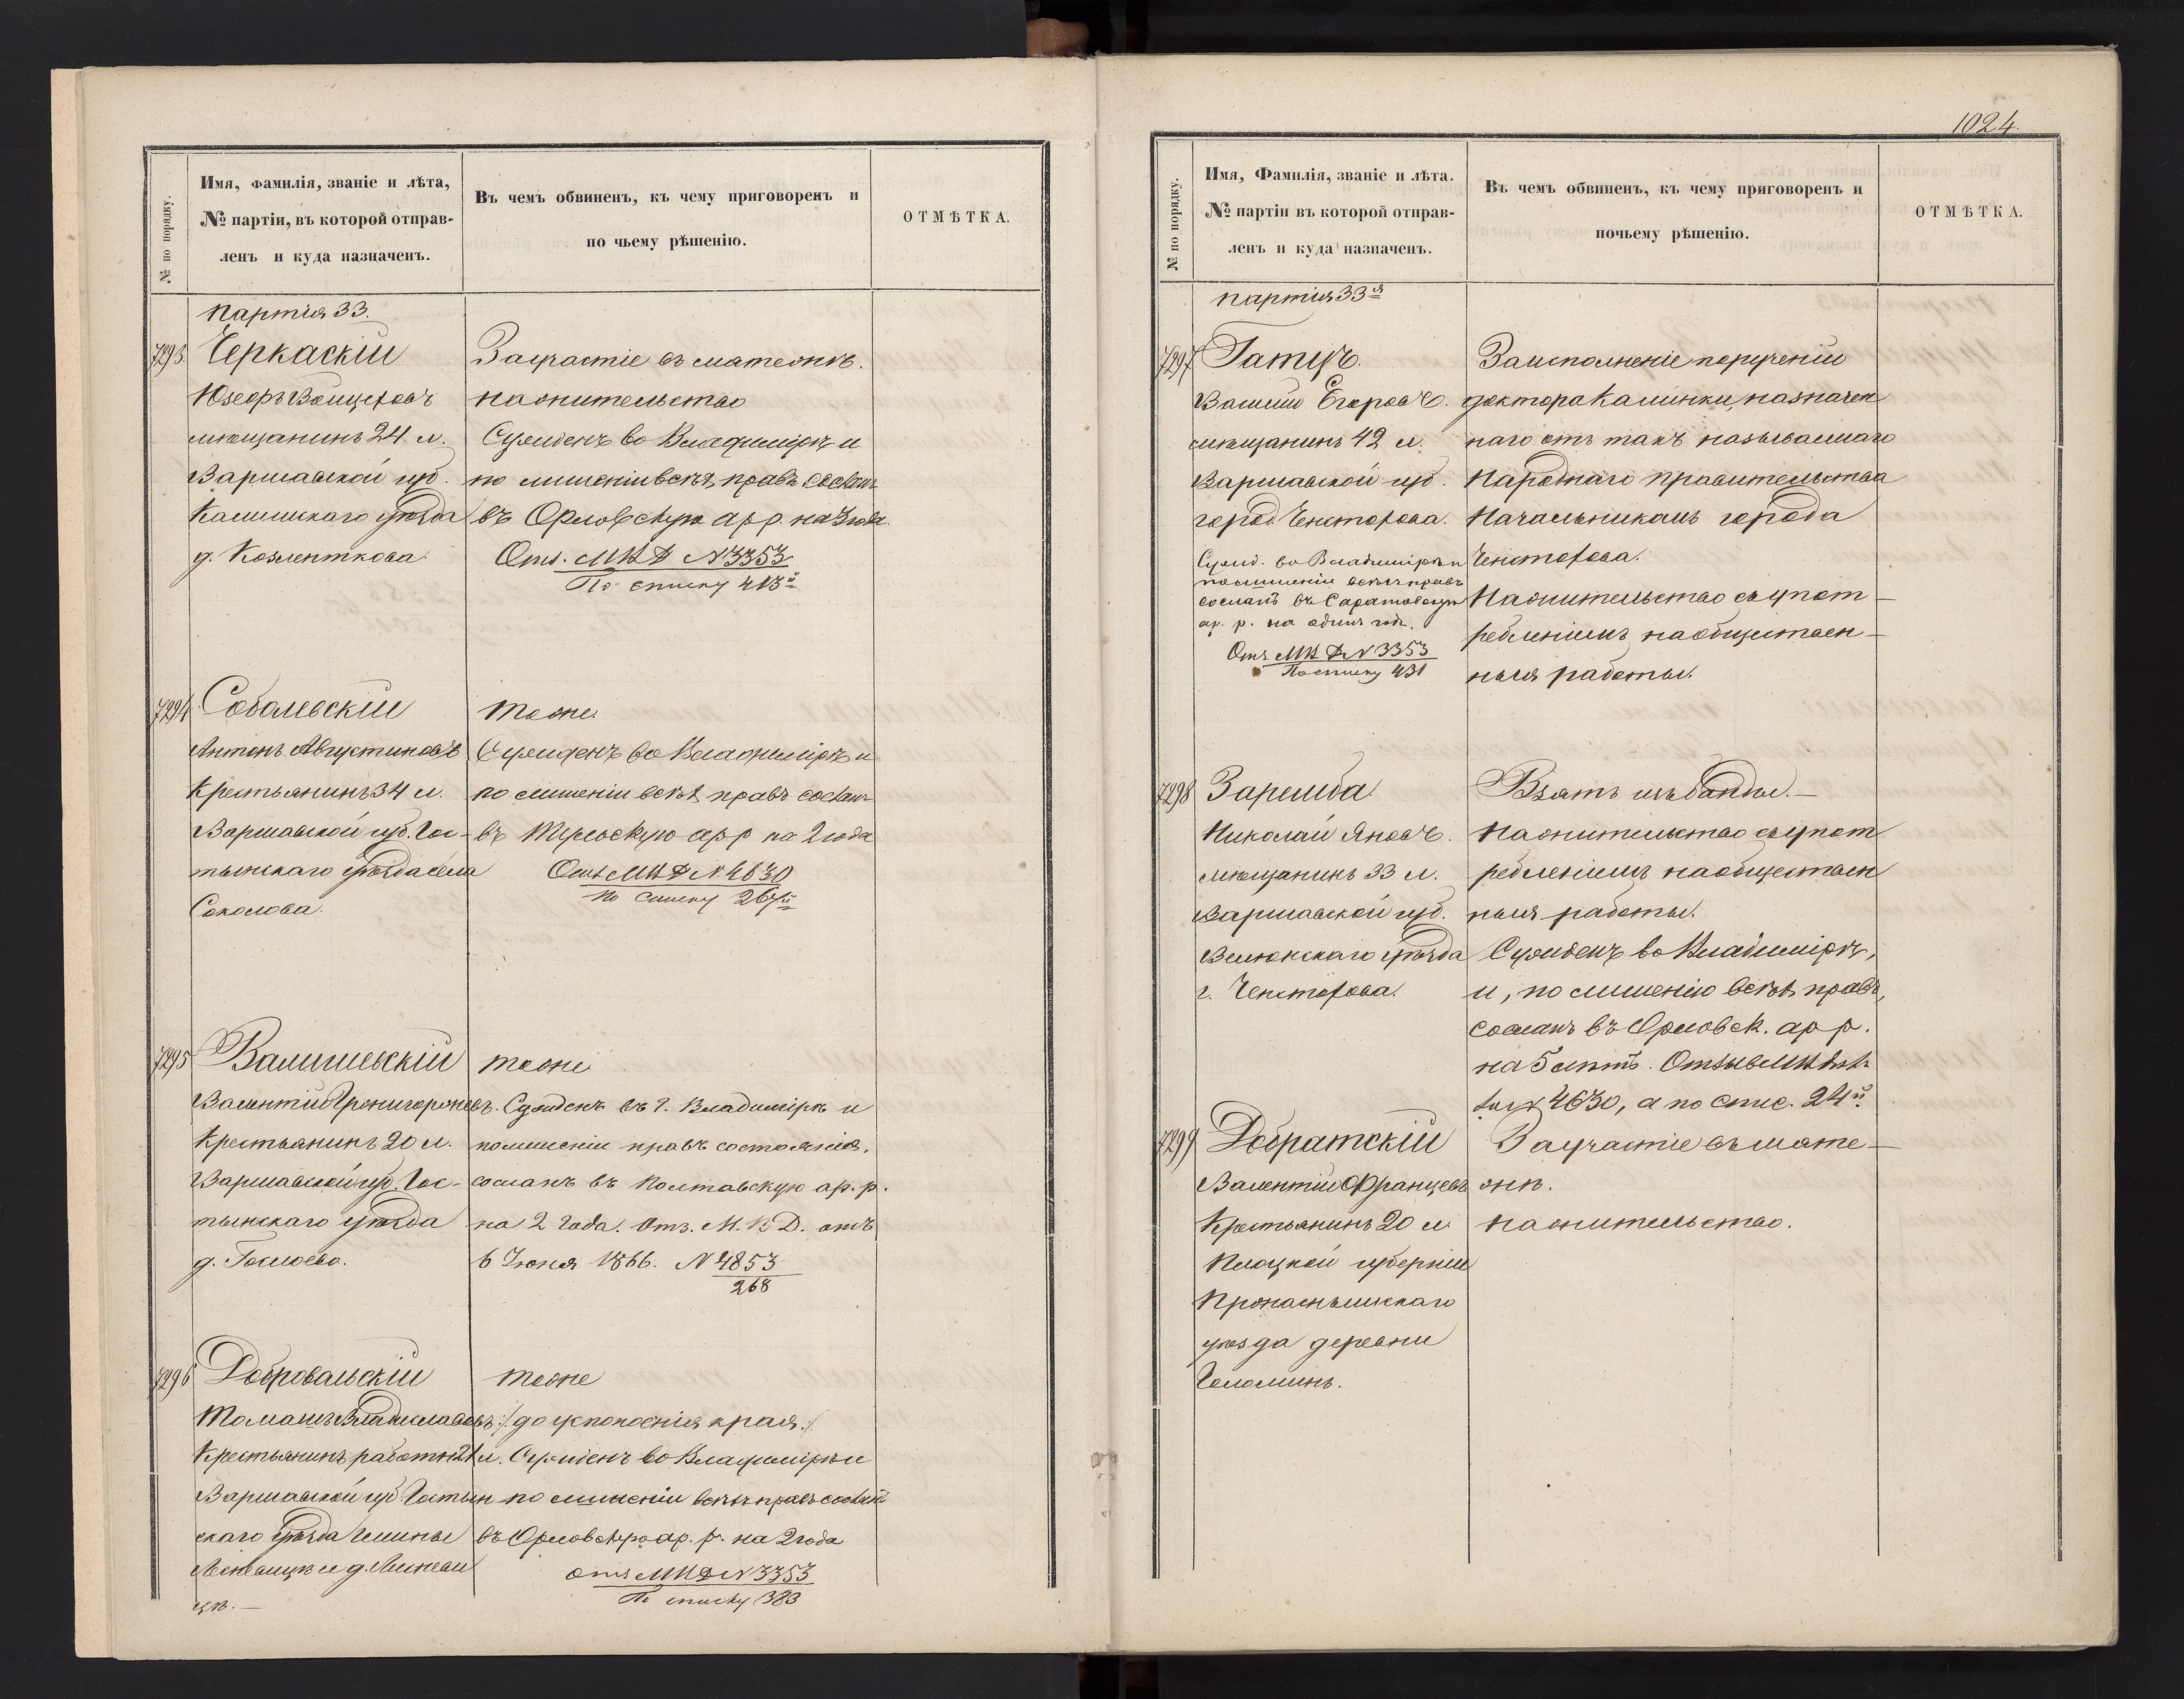 № по порядку.
Имя, фамилія, званіе и лѣта,
№ партіи, въ которой отправ-
ленъ и куда назначенъ.
Въ чемъ обвиненъ, къ чему приговоренъ и
по чьему рѣшенію.
ОТМѢТКА.
партія 33.
7293. Черкаскій
Юзефъ Войцеховъ
мѣщанинъ 24. л.
Варшавской губ.
Калишскаго уѣзда
д.
За участіе въ мятежѣ.
на жительство
Сужденъ во Владимірѣ и
по лишеніи всѣхъ правъ сослан
въ Орловскую ар р. на 3 года.
Отз. МВД N 3353
По списку 413й
7294 Соболевскій
Антонъ Августиновъ
Крестьянинъ 34 л.
Варшавской губ. Гос-
тынскаго уѣзда села
Соколова.
тоже.
Сужденъ во Владимірѣ и
по лишеніи всѣхъ правъ сослан
въ Тульскую ар р на 2 года
Отз МВД N 4630
по списку 267й
7295 Валишевскій
Валентій
Крестьянинъ 20 л.
Варшавской губ. Гос-
тынскаго уѣзда
д.
тоже
Сужденъ въ г. Владимірѣ и
по лишеніи правъ состоянія,
сосланъ въ Полтавскую ар. р.
на 2 года. Отз. М. В. Д. отъ
6 Іюня 1866. N 4853
268
7296 Добровольскій
Томашъ Владиславовъ
Крестьянинъ работн 21 л.
Варшавской губ Гостын
скаго уѣзда Гмины
и д.
цѣ.—
тоже
:/ до успокоенія края :/
Сужденъ во Владимірѣ и
по лишеніи всѣхъ правъ сослан
въ Орловскую ар. р. на 2 года
отз МВД N 3353
По списку 383
1024.
№ по порядку.
Имя, Фамилія, званіе и лѣта.
№ партіи въ которой отправ-
ленъ и куда назначенъ.
Въ чемъ обвиненъ, къ чему приговоренъ и
почьему рѣшенію.
ОТМѢТКА.
партія 33я
7297 Гатцъ.
Егоровъ.
мѣщанинъ 42 л.
Варшавской губ.
город Ченстохова.
Сужд. во Владимірѣ и
по лишеніи всѣхъ правъ
сосланъ въ Саратовскую
ар. р. на одинъ годъ.
Отз МВД N 3353
По списку 431
За исполненіе порученій
доктора Калинки, назначен
наго отъ такъ называемаго
Народнаго правительства
Начальникомъ города
Ченстохова.
На жительство съ упот-
ребленіемъ на обществен-
ныя работы.
7298 Заремба
Николай Яновъ.
мѣщанинъ 33 л.
Варшавской губ.
Велюнскаго уѣзда
г. Ченстохова.
Взятъ изъ банды.—
На жительство съ упот
ребленіемъ на обществен
ныя работы.
Сужденъ во Владимірѣ,
и, по лишенію всѣхъ правъ,
сосланъ въ Орловск. ар р.
на 5 лѣтъ. Отзывъ МВД
за N 4630, а по спис. 24й.
7299 Добратскій
Валентій Францевъ
Крестьянинъ 20 л
Плоцкой губерніи
Праснышскаго
уѣзда деревни
Голоминъ.
За участіе въ мяте-
жѣ.
на жительство.